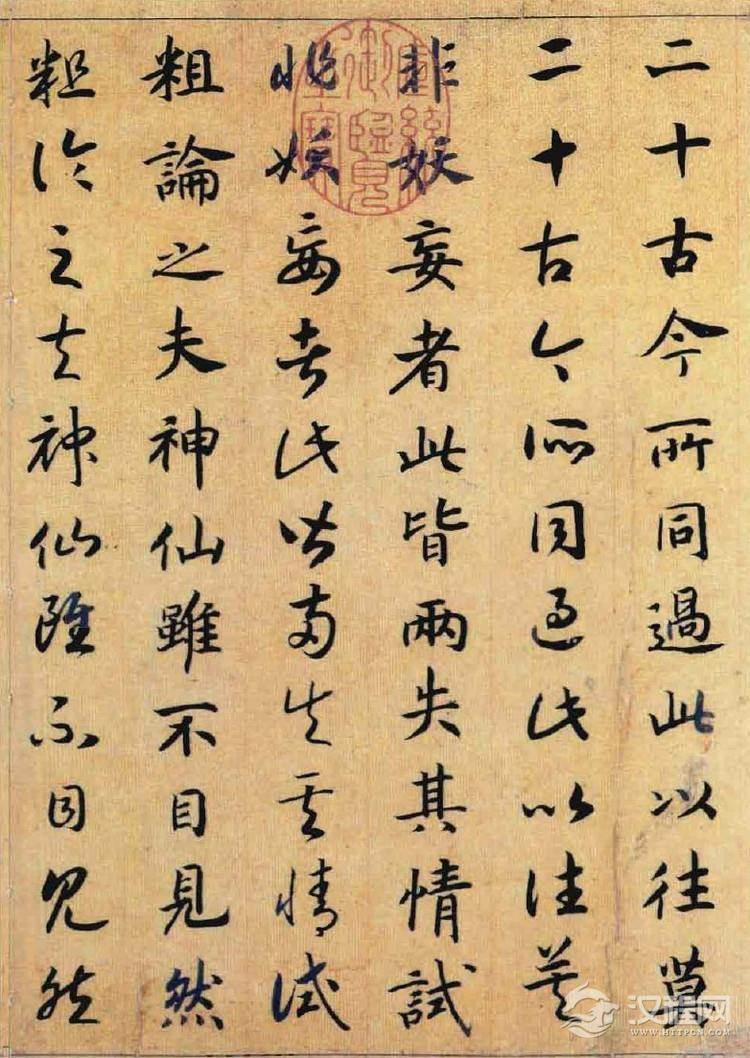 二十古今所同過此以往莫
二十古今所同過此以往莫
非妖妄者此皆兩失其情試
非妖妄者此皆兩失其情試
粗論之夫神仙雖不目見然
粗論之夫神仙雖不目見然
宣統
御覽
之寶
汉程网
WWW.HTTPCN.COM